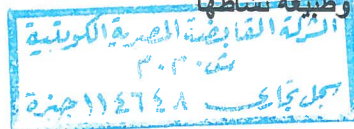 وطبيعة نشاطها
الشركة القابضة المصرية الكويتية
ش.م.م
سجل تجارى ١١٤٦٤٨ جيزة